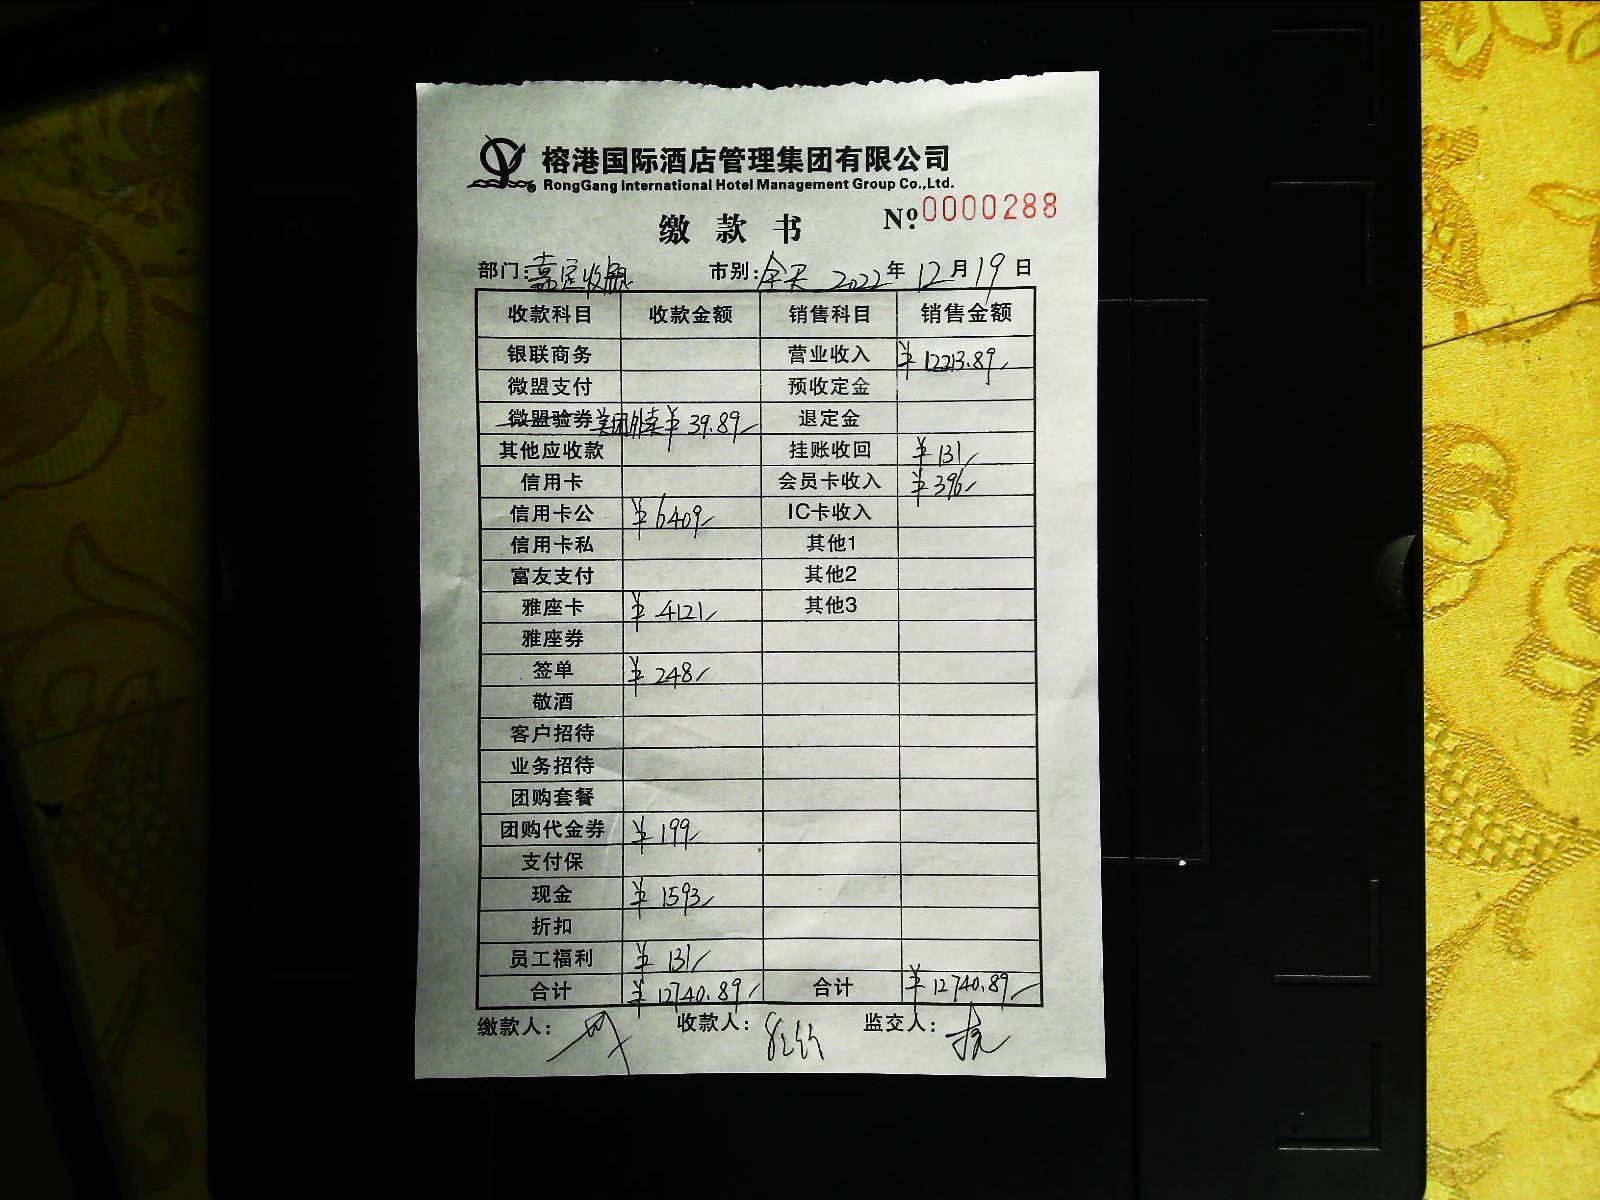 榕港国际酒店管理集团有限公司
RongGang International Hotel Management Group Co.,Ltd.
缴款书 Nº:0000288
部门:嘉定收 市别:全天 2022年12月19日
收款科目 收款金额 销售科目 销售金额
银联商务 营业收入 ¥12213.89
微盟支付 预收定金
微盟验券 美团外卖 ¥39.89 退定金
其他应收款 挂账收回 ¥131
信用卡 会员卡收入 ¥396
信用卡公 ¥6409 IC卡收入
信用卡私 其他1
富友支付 其他2
雅座卡 ¥4121 其他3
雅座券
签单 ¥248
敬酒
客户招待
业务招待
团购套餐
团购代金券 ¥199
支付保
现金 ¥1593
折扣
员工福利 ¥131
合计 ¥12740.89 合计 ¥12740.89
缴款人: 收款人: 监交人: